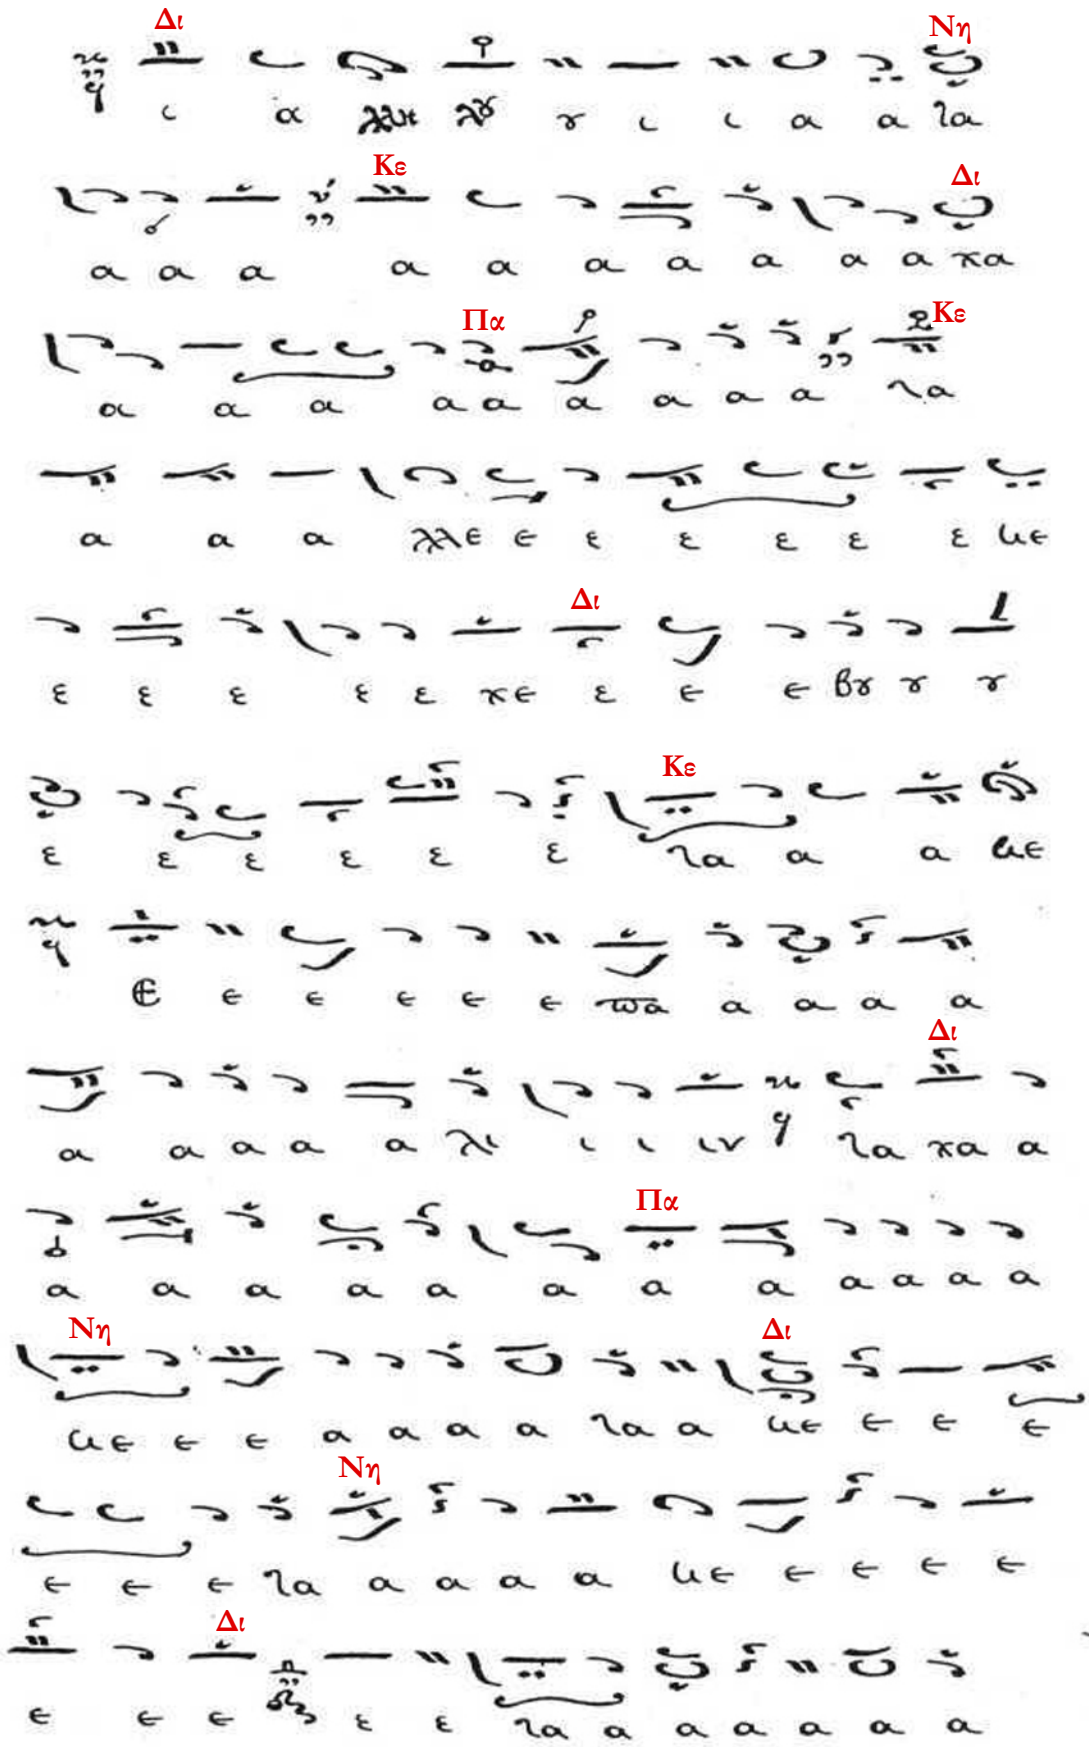 Δι Νη
ι α λλη λȣ ȣ ι ι α α γα
Κε Δι
α α α α α α α α α α χα
Πα Κε
α α α α α α α α α γα
α α α λλε ε ε ε ε ε ε με
Δι
ε ε ε ε ε χε ε ε ε βȣ ȣ ȣ
Κε
ε ε ε ε ε ε γα α α με
ε ε ε ε ε ε πα α α α α
Δι
α α α α α λι ι ι ιν γα χα α
Πα
α α α α α α α α α α α α
Νη Δι
με ε ε α α α α γα α με ε ε ε
Νη
ε ε ε γα α α α α με ε ε ε ε
Δι
ε ε ε ε ε γα α α α α α α